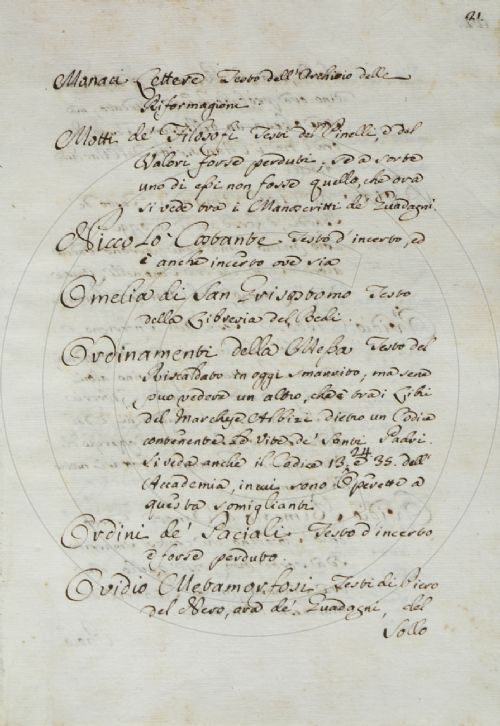 121.
Manaci Lettere Testo dell'Archivio delle
Riformagioni
Motti de' Filosofi Testi del Pinelli, e del
Valori forse perduti, se a sorte
uno di essi non fosse quello, che ora
si vede tra i Manoscritti de' Guadagni.
Niccolò Costante Testo d'incerto, ed
è anche incerto ove sia
Omelia di San Grisostomo Testo
della Libreria del Cocchi.
Ordinamenti della Messa Testo del
Riscaldato in oggi smarrito, ma se ne
può vedere un altro, che è tra i Libri
del Marchese Albizi dietro un Codice
contenente le Vite de' Santi Padri.
Si veda anche il Codice 13. 24 e 35. dell'
Accademia, in cui sono Operette a
questa somiglianti.
Ordini de' Paciali Testo d'incerto
è forse perduto.
Ovidio Metamorfosi Testi di Piero
del Nero, ora de' Guadagni, del
Sollo